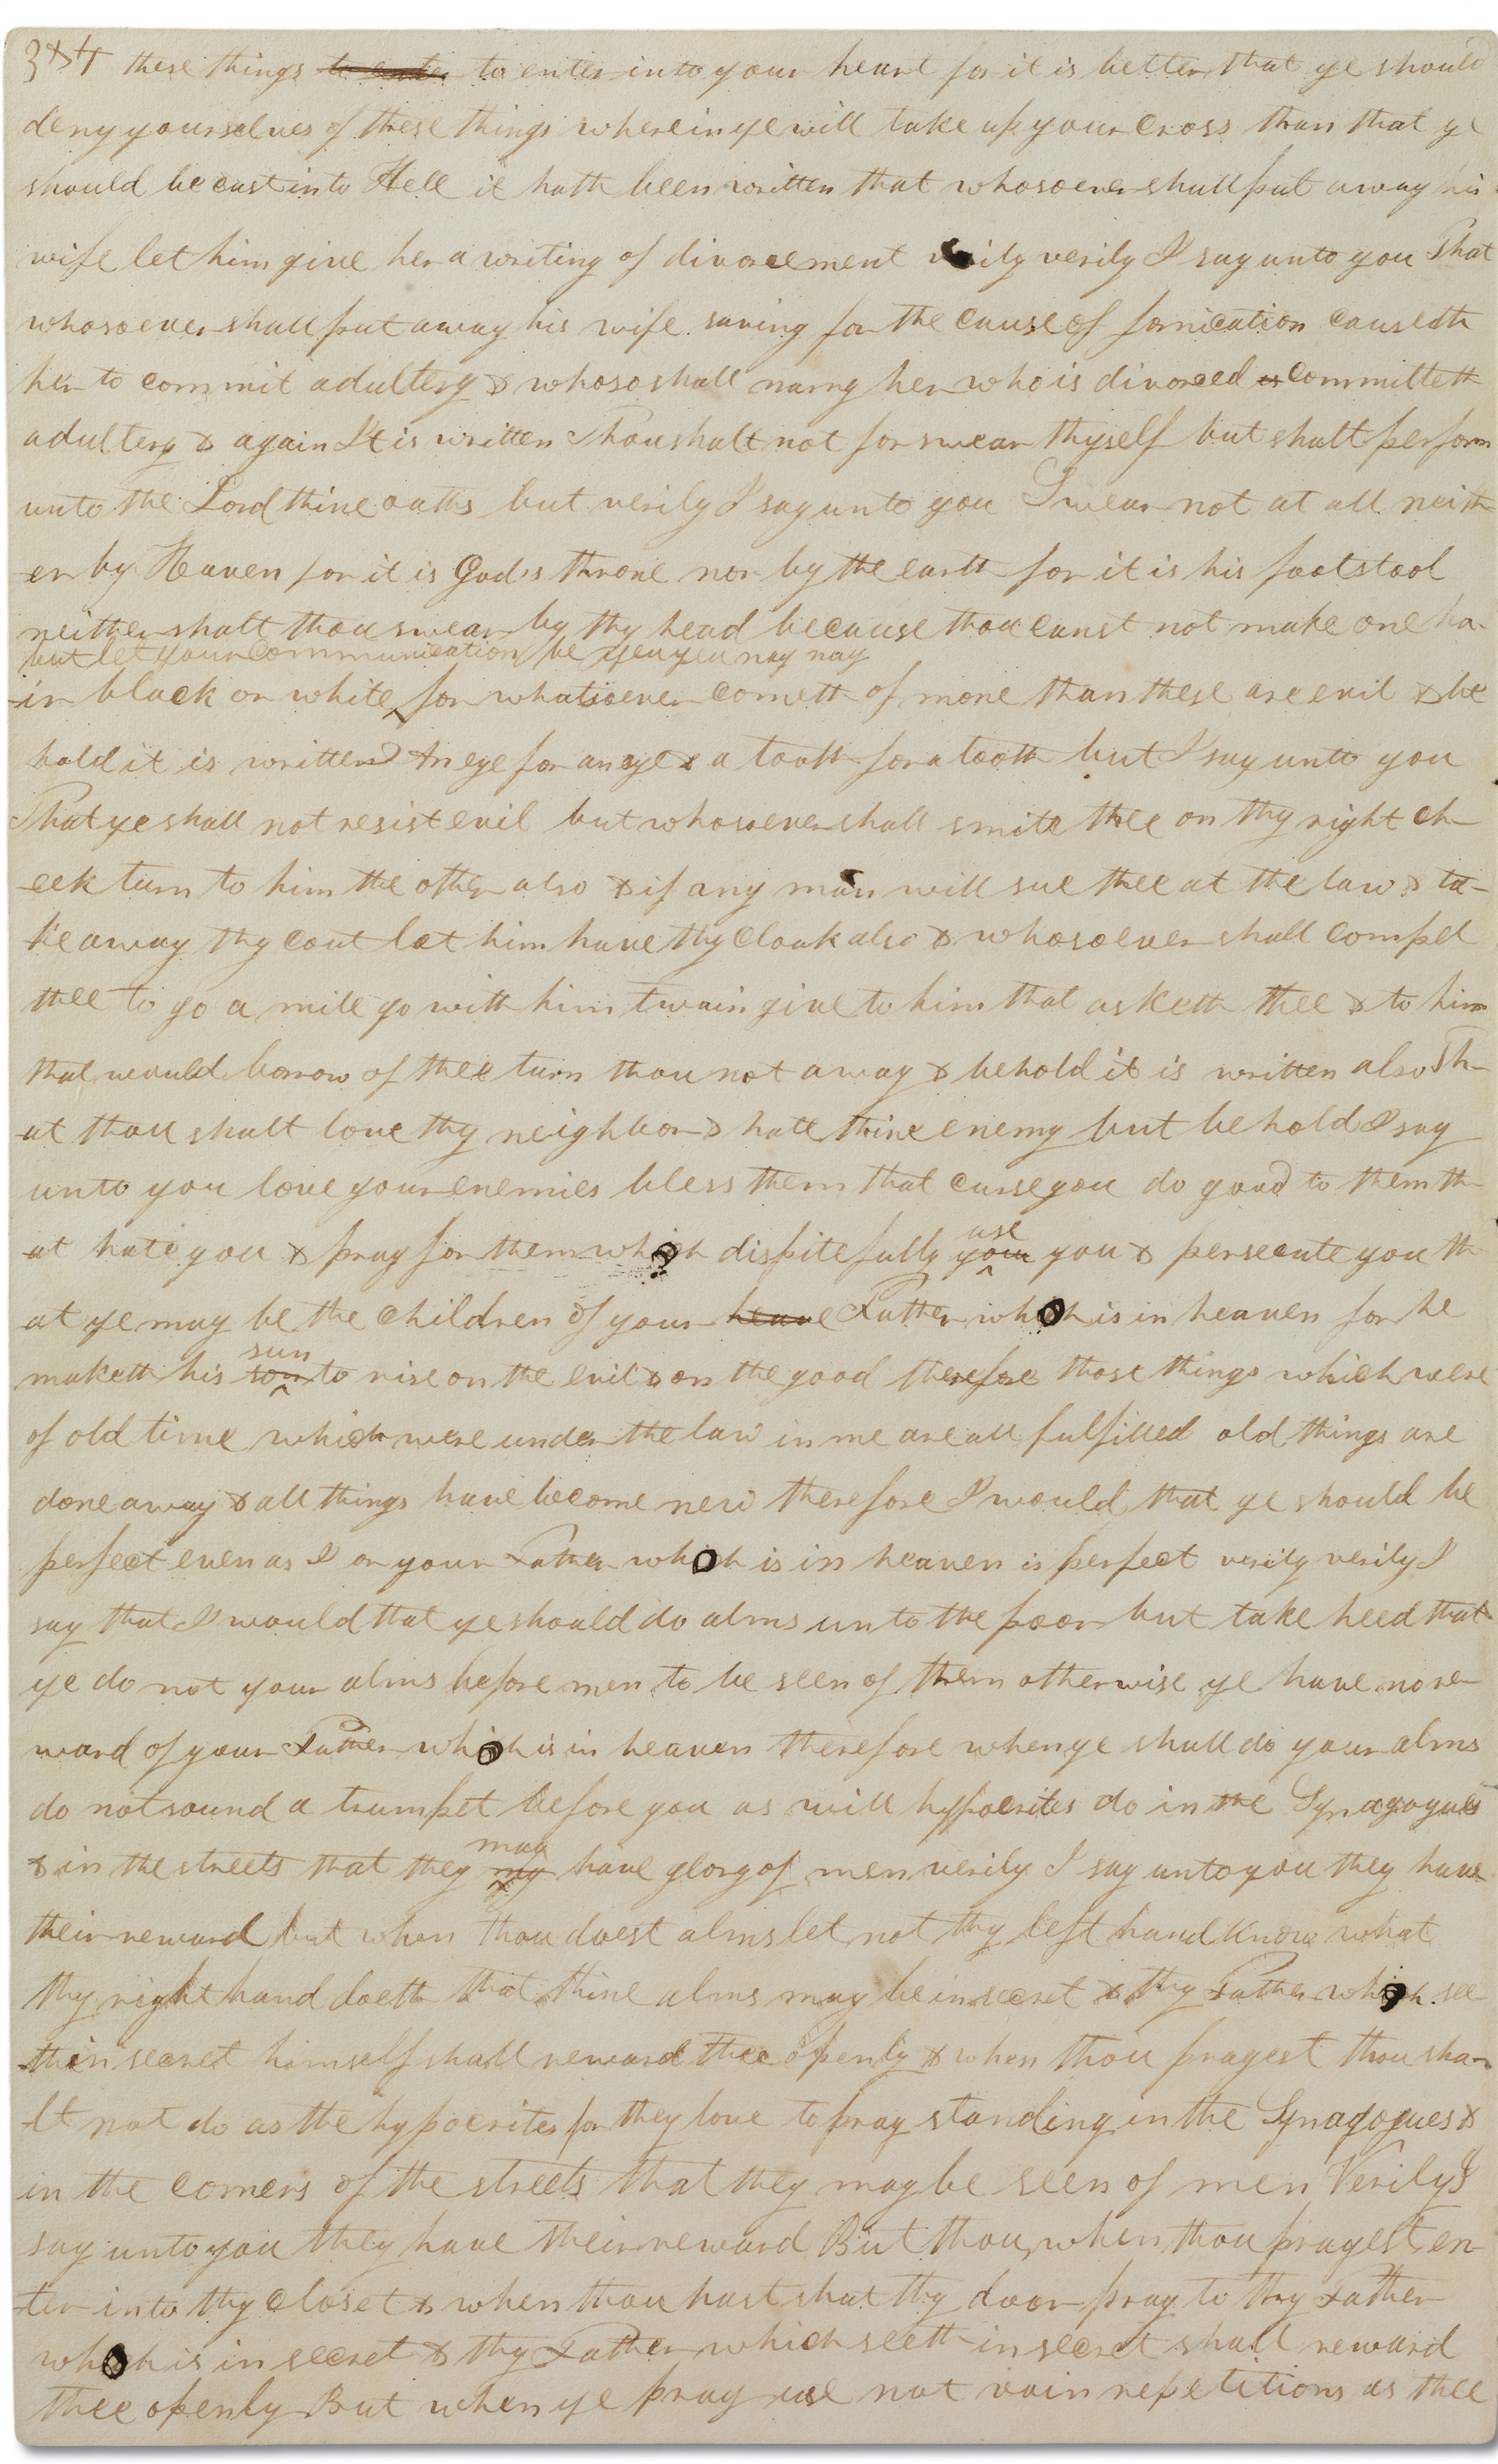 3&4 these things to enter to enter into your heart for it is better that ye should
deny yourselves of these things wherein ye will take up your cross than that ye
should be cast into Hell it hath been written that whosoever shall put away his
wife let him give her a writing of divorcement verily verily I say unto you That
whosoever shall put away his wife saving for the cause of fornication causeth
her to commit adultery & whoso shall marry her who is divorced is committeth
adultery & again It is written Thou shalt not forswear thyself but shalt perform
unto the Lord thine oaths but verily I say unto you Swear not at all neith-
er by Heaven for it is God's throne nor by the earth for it is his footstool
neither shalt thou swear by thy head because thou canst not make one ha-
but let your communication be yea yea nay nay
-ir black or white for whatsoever cometh of more than these are evil & be
hold it is written An eye for an eye & a tooth for a tooth but I say unto you
That ye shall not resist evil but whosoever shall smite thee on thy right ch-
-eek turn to him the other also & if any man will sue thee at the law & ta-
-ke away thy coat let him have thy cloak also & whosoever shall compel
thee to go a mile go with him twain give to him that asketh thee & to him
that would borrow of thee turn thou not away & behold it is written also Th-
-at thou shalt love thy neighbor & hate thine enemy but behold I say
unto you love your enemies bless them that curse you do good to them th-
use
-at hate you & pray for them which dispitefully you you & persecute you th-
-at ye may be the children of your heave Father which is in heaven for he
sun
maketh his son to rise on the evil & on the good therefore those things which were
of old time which were under the law in me are all fulfilled old things are
done away & all things have become new therefore I would that ye should be
perfect even as I or your Father which is in heaven is perfect verily verily I
say that I would that ye should do alms unto the poor but take heed that
ye do not your alms before men to be seen of them otherwise ye have no re-
ward of your Father which is in heaven therefore when ye shall do your alms
do not sound a trumpet before you as will hypocrites do in the Synagogues
may
& in the streets that they my have glory of men verily I say unto you they have
their reward but when thou doest alms let not thy left hand know what
thy right hand doeth that thine alms may be in secret & thy Father which see-
-th in secret himself shall reward thee openly & when thou prayest thou sha-
-lt not do as the hypocrites for they love to pray standing in the Synagogues &
in the corners of the streets that they may be seen of men Verily I
say unto you they have their reward But thou when thou prayest en-
-ter into thy closet & when thou hast shut thy door pray to thy Father
which is in secret & thy Father which seeth in secret shall reward
thee openly But when ye pray use not vain repetitions as thee